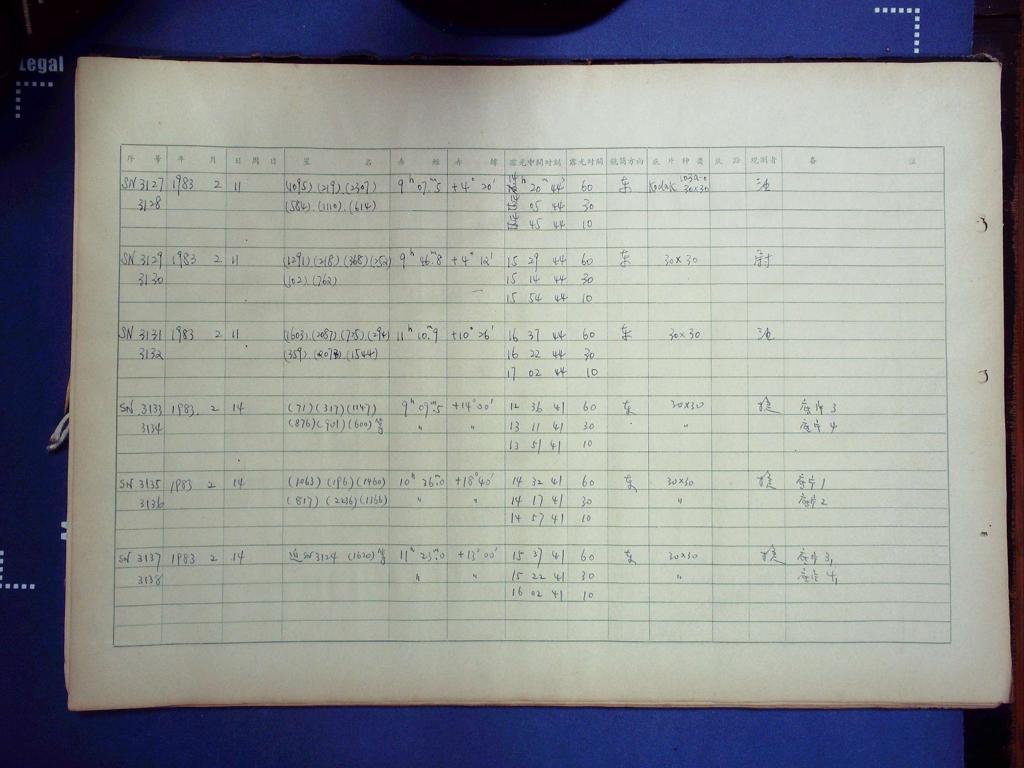 Legal
序 号 年 月 日 周 日 星 名 赤 经 赤 纬 露光中间时刻 露光时间 镜筒方向 底 片 种 类 观测者 备 注
SN 3127 1983 2 11 (1095) (219) (2307) 9h 07.m5 +4° 20' 14h 20 44 60 东 Kodak 103a-O 30×30
3128 (584) (1110) (614) 05 44 30
14 45 44 10
SN 3129 1983 2 11 (1291) (218) (368) (252) 9h 46.m8 +4° 12' 15 29 44 60 东 30×30
3130 (102) (762) 15 14 44 30
15 54 44 10
SN 3131 1983 2 11 (1603) (2087) (725) (294) 11h 10.m9 +10° 26' 16 37 44 60 东 30×30
3132 (359) (2078) (1544) 16 22 44 30
17 02 44 10
SN 3133 1983 2 14 (71) (317) (1147) 9h 07.m5 +14° 00' 12 36 41 60 东 30×30 底片 3
3134 (876) (901) (600) 等 " " 13 11 41 30 " 底片 4
13 51 41 10
SN 3135 1983 2 14 (1063) (196) (1460) 10h 36.m0 +18° 40' 14 32 41 60 东 30×30 底片 1
3136 (817) (2236) (1366) " " 14 17 41 30 " 底片 2
14 57 41 10
SN 3137 1983 2 14 SN 3124 (1620) 等 11h 23.m0 +13° 00' 15 37 41 60 东 30×30 底片 3
3138 " " 15 22 41 30 " 底片 4
16 02 41 10